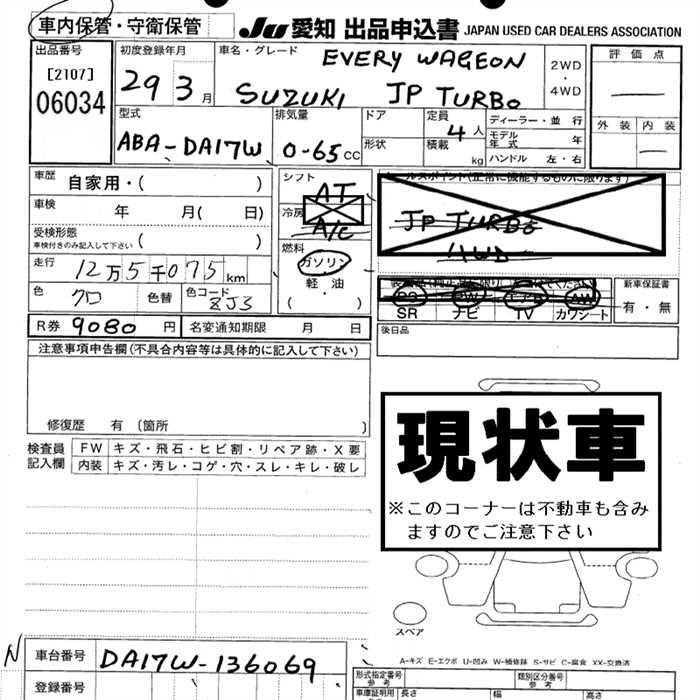 車内保管・守衛保管
JU 愛知 出品申込書 JAPAN USED CAR DEALERS ASSOCIATION
出品番号
[2107]
06034
初度登録年月
29 3月
車名・グレード
EVERY WAGEON
SUZUKI JP TURBO
2WD
・
4WD
評価点
外装 内装
型式
ABA-DA17W
排気量
0-65cc
ドア
形状
定員
4人
積載
kg
ディーラー・並行
モデル年式 年
ハンドル 左・右
車歴 自家用・( )
車検 年 月( 日)
受検形態
車検付きのみ記入して下さい ( )
走行 12万5千075km
色 クロ 色替 色コード ZJ3
シフト
AT
冷房
A/C
燃料
ガソリン
・
軽油
( )
JP TURBO
4WD
PS PW エアB AW
SR ナビ TV カワシート
新車保証書
有・無
後日品
R券 9080円 名変通知期限 月 日
注意事項申告欄(不具合内容等は具体的に記入して下さい)
修復歴 有 (箇所 )
検査員記入欄
FW キズ・飛石・ヒビ割・リペア跡・X要
内装 キズ・汚レ・コゲ・穴・スレ・キレ・破レ
現状車
※このコーナーは不動車も含み
ますのでご注意下さい
スペア
A-キズ E-エクボ U-凹み W-補修跡 S-サビ C-腐食 XX-交換済
N
車台番号 DA17W-136069
登録番号
形式指定番号
参考
類別区分番号
参考
車庫証明用
長さ 幅 高さ